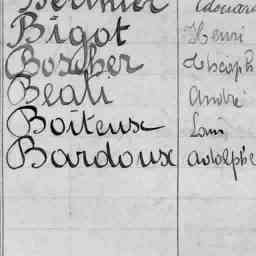 Bigot Henri
Boscher Joseph
Beati André
Boiteux Louis
Bardoux Adolphe